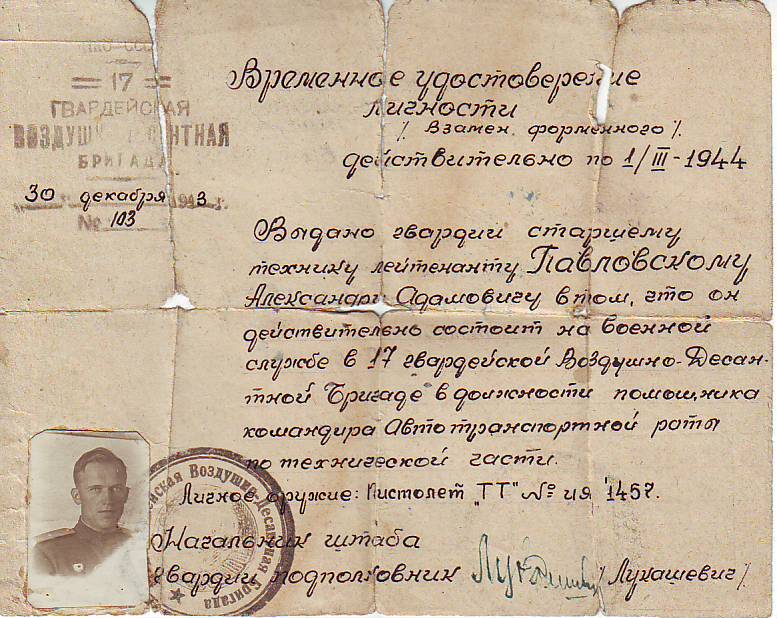 НКО-СССР
17
ГВАРДЕЙСКАЯ
ВОЗДУШНО-ДЕСАНТНАЯ
БРИГАДА
30 декабря 1943 г.
№ 103
Временное удостоверение
личности
/. Взамен форменного /.
действительно по 1/III-1944
Выдано гвардии старшему
технику лейтенанту Павловскому
Александру Адамовичу в том, что он
действительно состоит на военной
службе в 17 гвардейской Воздушно-Десан-
тной Бригаде в должности помощника
командира Автотранспортной роты
по технической части.
Личное оружие: Пистолет „ТТ" № ИЯ 1457.
Начальник штаба
гвардии подполковник
/Лукашевич/
Воздушно-Десантная Бригада